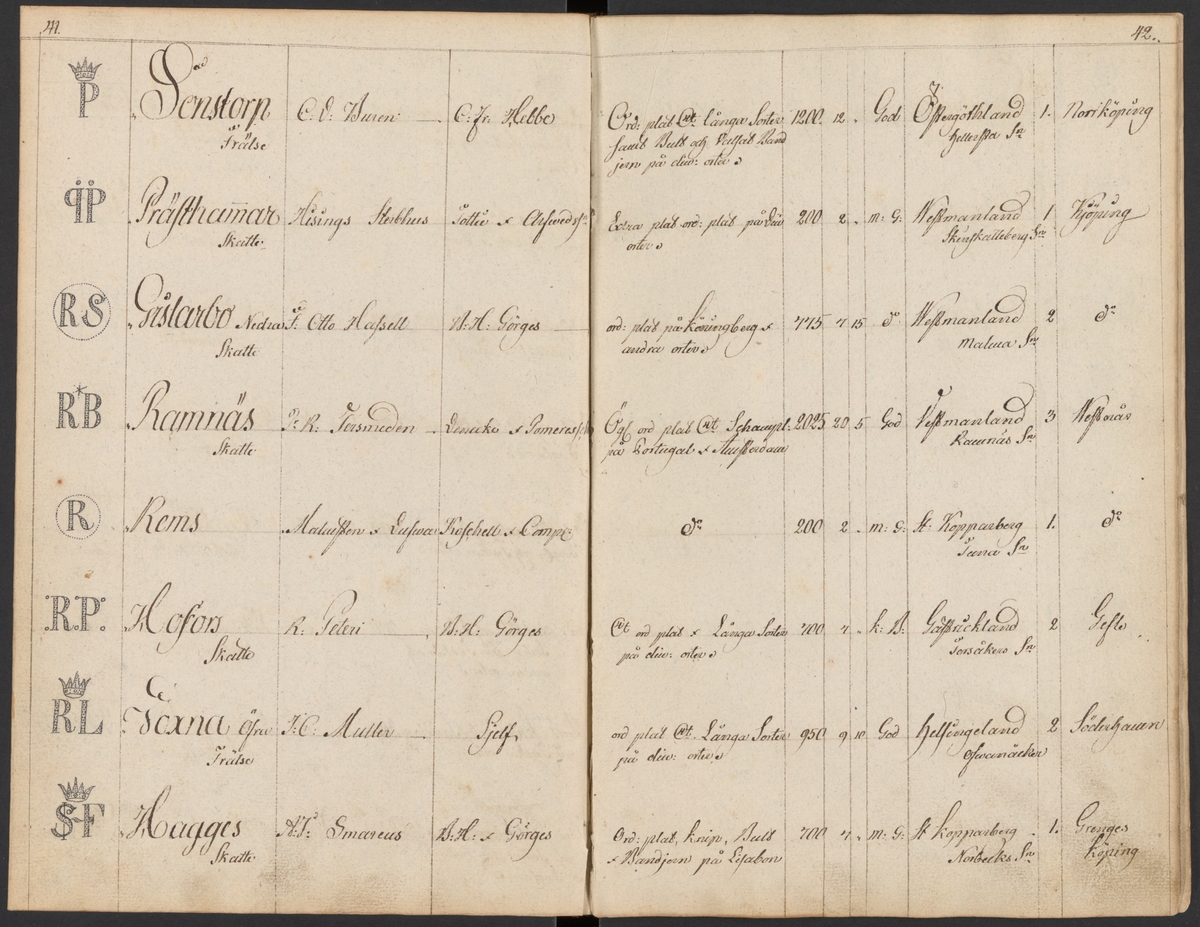 41.
42.
P Sonstorp C: D: Buren C: Fr: Hebbe Ord: plat långa Sorter 1200. 12 God Östergöthland 1. Norrköping
Frälse samt Bult och Band Hellersta Sn
jern på div: orter
P Prästhammar Hisings Sterbhus Tottie & Arfwedsson Extra plat ord: plat på div 200 2 m: G: Westmanland 1 Kjöping
Skatte orter Skinskatteberg Sn
RS Gislarbo Nedra J: Otto Hassell B: H: Görges ord: plat på Köningberg & 775 7 15 do Westmanland 2 do
Skatte andra orter Malma Sn
RB Ramnäs P: R: Tersmeden ord plat 2025 20 5 God Westmanland 3 Westerås
Skatte på Portugal & Amsterdam Ramnäs Sn
R Rems Koschell & Comp: do 200 2 m: G: St: Kopparberg 1. do
Tuna Sn
R.P. Hofors R: Peteri B: H: Görges ord plat & Långa Sorter 700 7 k: B: Gästrickland 2 Gefle
Skatte på div: orter Torsåkers Sn
RL Voxna Öfra J: C: Muller Sjelf ord plat Långa Sorter 950 9 10 God Helsingeland 2 Söderhamn
Frälse på div: orter Ofwanåcker
SF Hagges A: F: Smareus B: H: & Görges Ord: plat, knip, Bult 700 7 m: G: St Kopparberg 1. Grenges
Skatte & Bandjern på Lisabon Norbecks Sn Köping